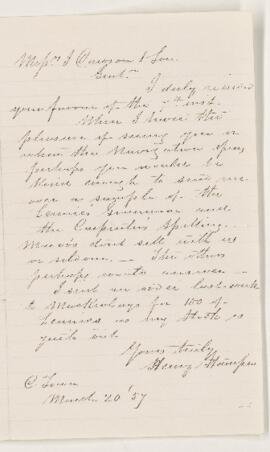 Messrs J Dawson & Son
Gentn
I duly received
your favour of the 7th inst.
When I have the
pleasure of seeing you or
when the Navigation opens
perhaps you would be
kind enough to send me
over a sample of the
Lennies Grammar and
the Carpenters Spelling
Mavors dont sell with us
or seldom — The others
perhaps would answer —
I sent an order last week
to for 100 of
Lennies as my stock is
quite out
Yours truly
Henry
C Town
March 20 '57